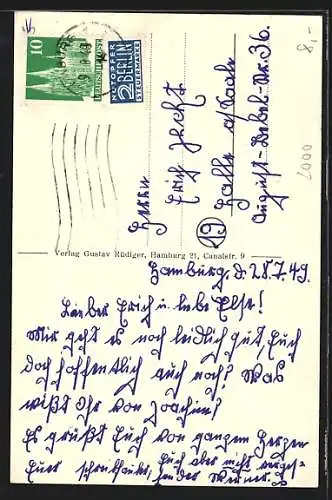 10
DEUTSCHE POST
NOTOPFER
2 BERLIN
STEUERMARKE
8,-
2000
Herrn
Erich Hecht
Halle a/Saale
August-Bebel-Str. 36.
19
Verlag Gustav Rüdiger, Hamburg 21, Canalstr. 9
Hamburg, d. 28.7.49.
Lieber Erich u. liebe Else!
Mir geht es noch leidlich gut, Euch
doch hoffentlich auch noch? Was
wißt Ihr von Joachim?
Es grüßt Euch von ganzem Herzen
Euer schreibfauler, Euch aber nicht verges-
sender Werner.